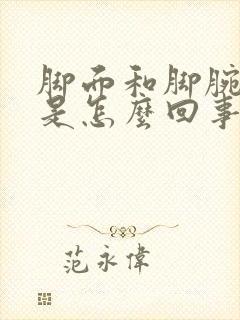 脚而和脚腕
是怎麼回事
范永偉